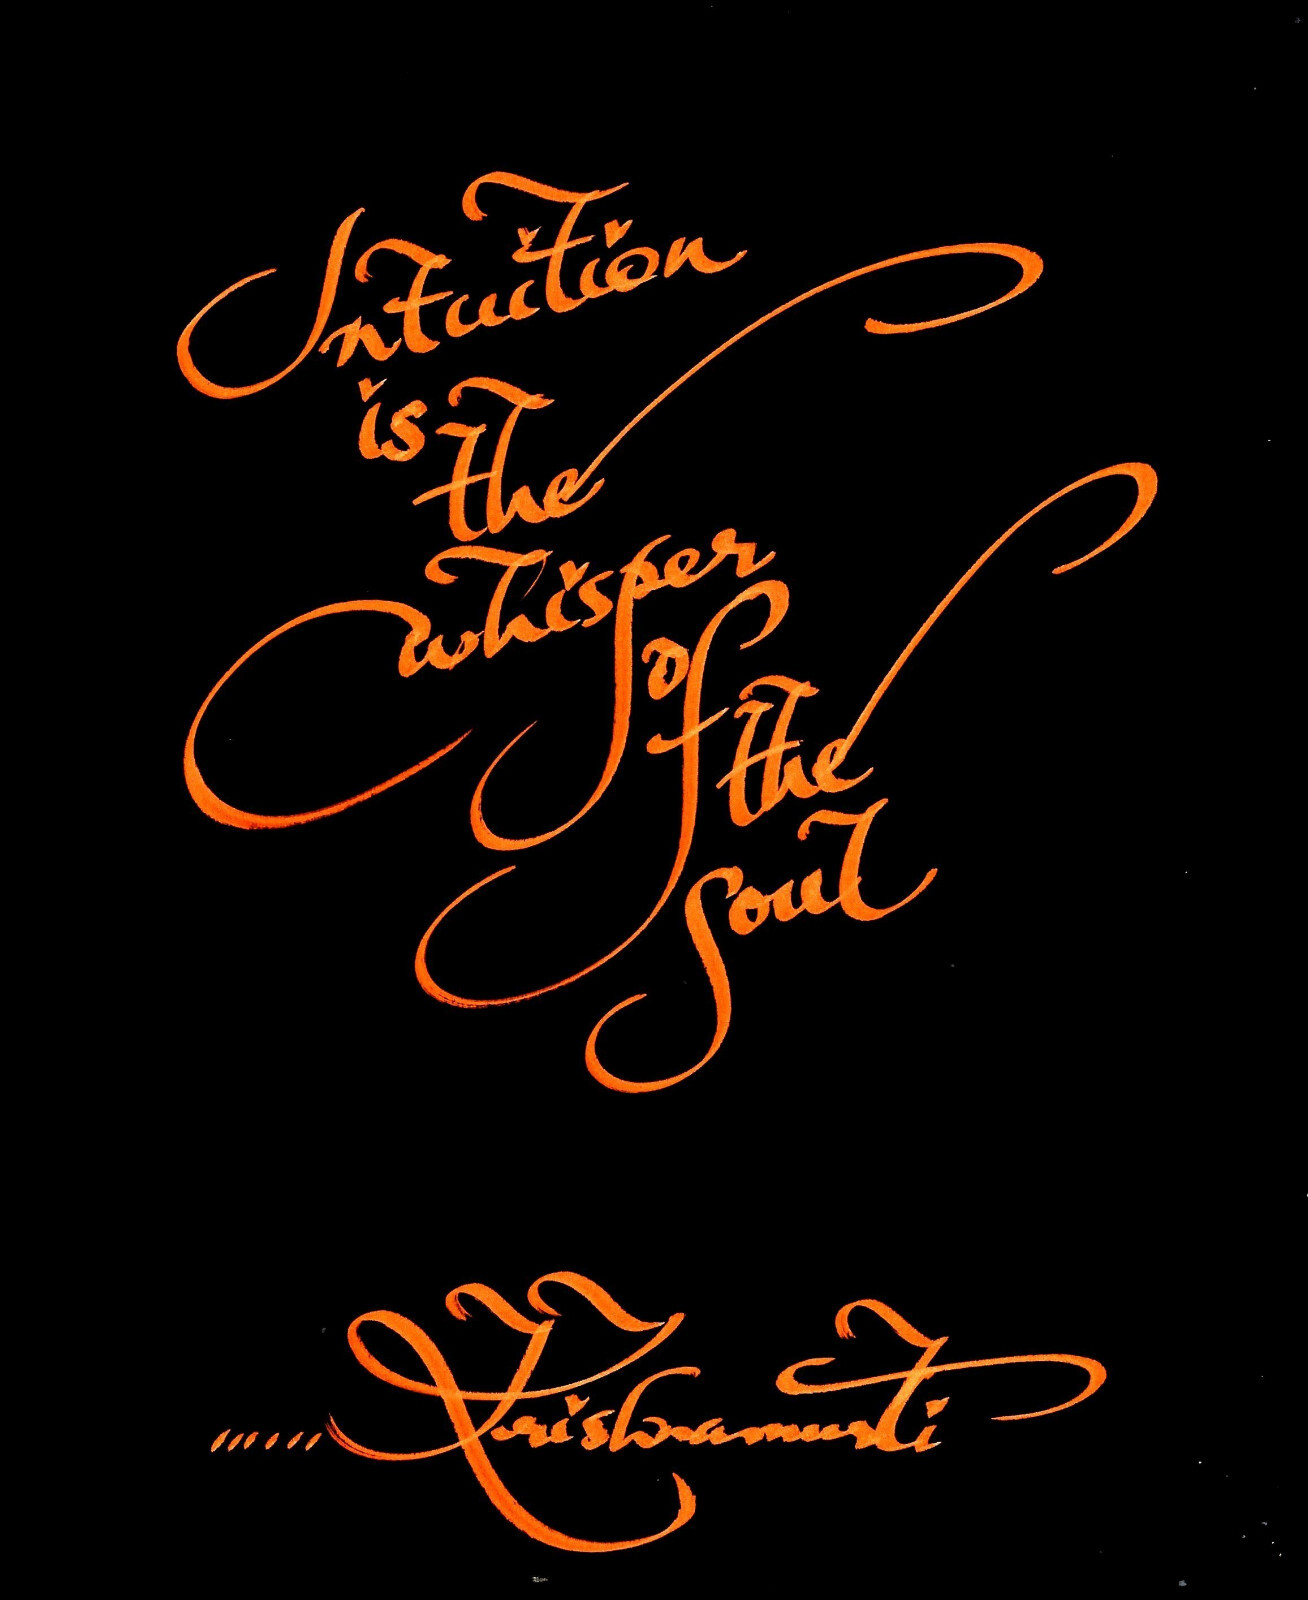 Intuition
is
the
whisper
of
the
soul
......Krishnamurti